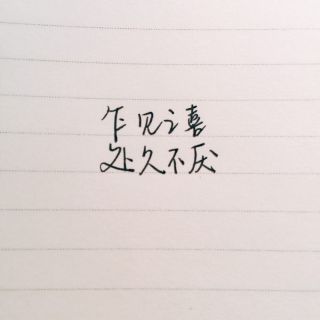 乍见之喜
处久不厌